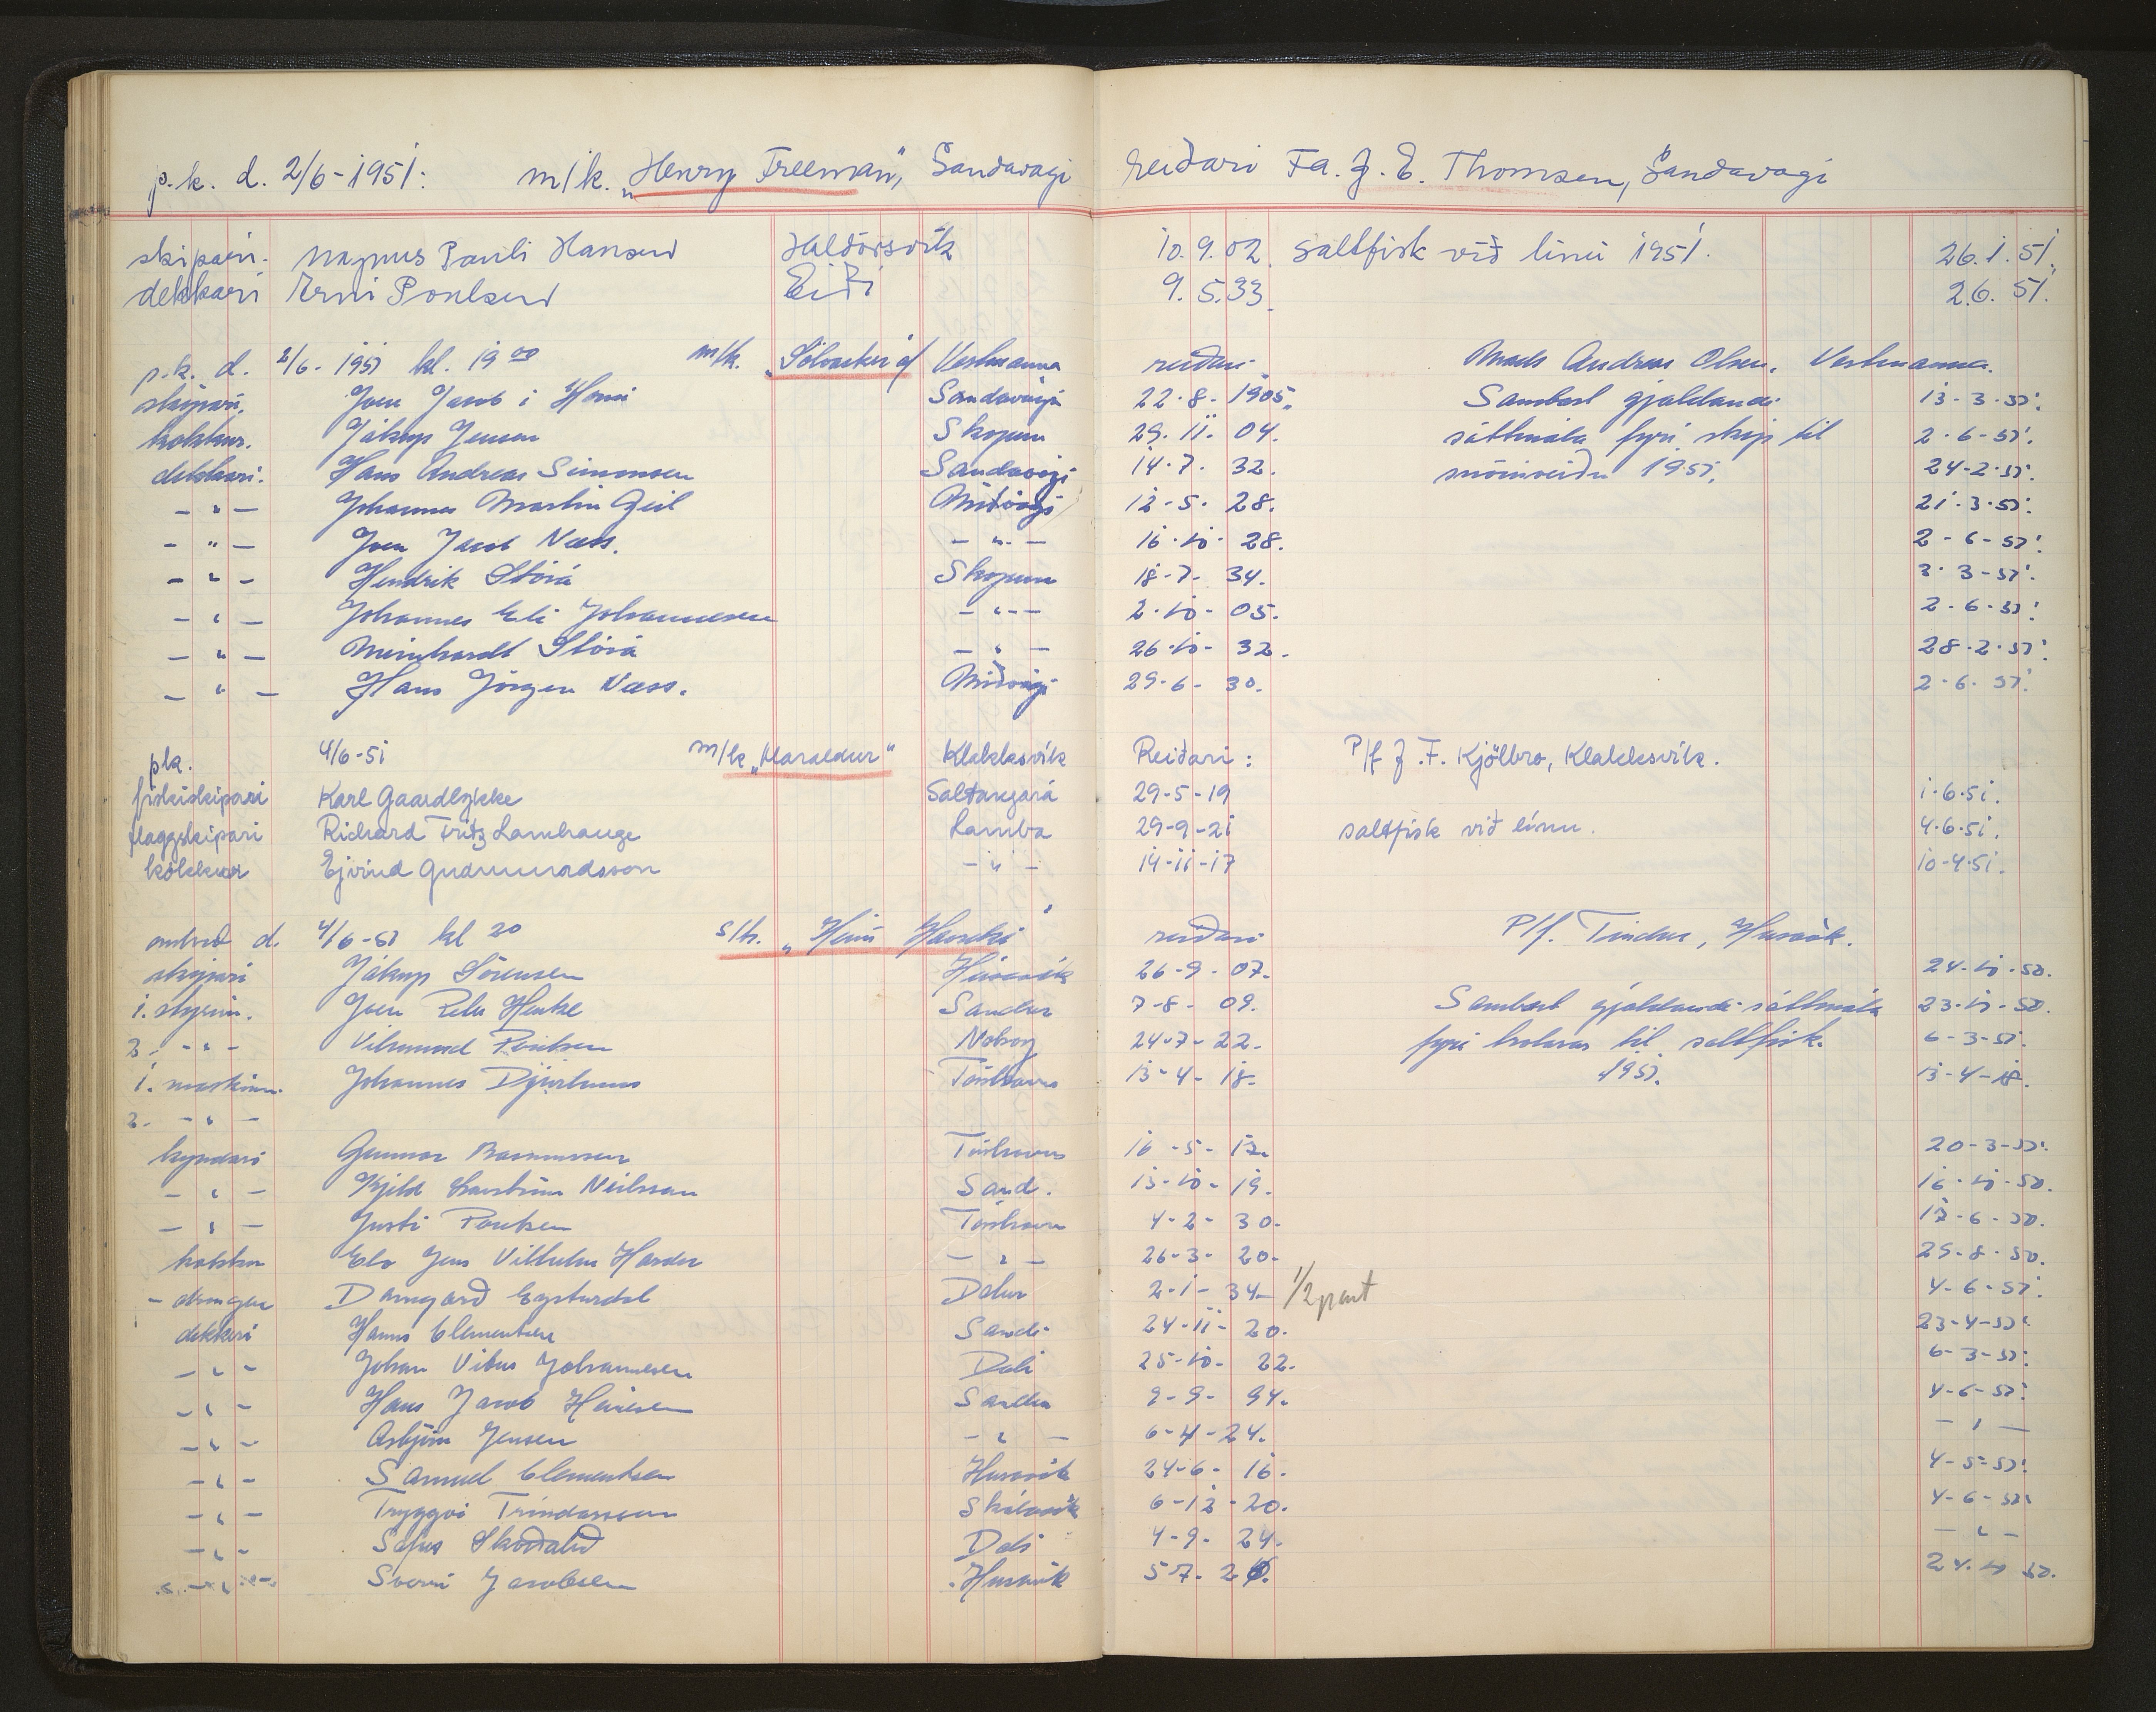 p.k. d. 2/6-1951: m/k. „Henry Freeman", Sandavági reiðari Fa. J. E. Thomsen, Sandavági
skipari. Magnus Pauli Hansen Haldórsvík 10.9.02 saltfisk við línu 1951. 26.1.51.
dekkari Erni Poulsen Eiði 9.5.33. 2.6.51.
p.k. d. 2/6-1951 kl. 19 00 m/k. Vestmanna reiðari Mads Andreas Olsen, Vestmanna.
skipari. Joen Jacob i Sandavági 22-8-1905. Sambært gjaldandi 13-3-51.
kokkur. Jákup Jensen Skopun 29.11.04. sáttmála fyri skip til 2-6-51.
dekkari. Hans Andreas Simonsen Sandavági 14-7-32. 1951. 24-2-51.
-"- Johannes Martin Geil Miðvági 12-5-28. 21-3-51.
-"- Joen Jacob Næss. -"- 16-10-28. 2-6-51.
-"- Hendrik Stórá Skopun 18-7-34. 3-3-51.
-"- Johannes Eli Johannesen -"- 2-10-05. 2-6-51.
-"- Meinhardt Stórá -"- 26-10-32. 28-2-51.
-"- Hans Jörgen Næss. Miðvági 29-6-30. 2-6-51.
pk. 4/6-51 m/k „Haraldur" Klakksvík Reiðari: P/f J.F. Kjølbro, Klakksvík.
fiskiskipari Karl Gaardlykke Saltangará 29-5-19 1.6.51.
flaggskipari Richard Fritz Lamhauge Lamba 29-9-21 saltfisk við línu. 4.6.51.
kokkur Ejvind Gudmundsson -"- 14-11-17 10-4-51.
d. 4/6-51 kl 20 s/k. „ reiðari P/f. Tindur, Húsavík.
skipari Jákup Sörensen Húsavík 26-9-07. 24-10-50.
1. stýrim. Joen Peter Henke Sandur 7-8-09. Sambært gjaldandi sáttmála 23-10-50.
2. -"- Vilmund Poulsen 24-7-22. fyri til saltfisk. 6-3-51.
1. maskinm. Johannes Djurhuus Tórshavn 13-4-18. 1951. 13-4-18.
2. -"-
kyndari Gunnar Rasmussen Tórshavn 16-5-17. 20-3-51.
-"- Kjeld Neilsson Sand. 13-10-19. 16-10-50.
-"- Justi Poulsen Tórshavn 4-2-30. 17-6-50.
kokkur Elo Jens Vilhelm Harder -"- 26-3-20. 29-8-50.
- drongur Eysturdal Dalur 2-1-34- 1/2 part 4-6-51.
dekkari Hanus Clementsen Sandi 24-11-20. 23-4-51.
-"- Johan Vitus Johannesen Dali 25-10-22. 6-3-51.
-"- Hans Jacob Sandur 9-9-94. 4-6-51.
-"- Asbjörn Jensen -"- 6-4-24. -"-
-"- Samuel Clementsen Húsavík 24-6-16. 4-5-51.
-"- Tryggvi Skálavík 6-12-20. 4-6-51.
-"- Sofus Skorðalið Dali 4-9-24. -"-
-"- Sverri Jacobsen Húsavík 5-7- 24. 10 50.